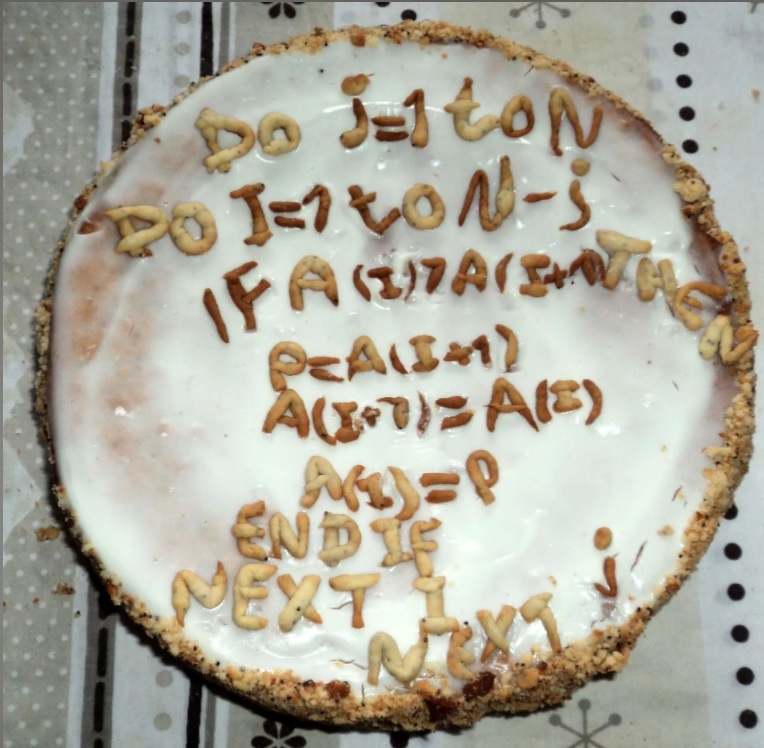 DO j=1 to N
DO I=1 to N-j
IF A(I)>A(I+1) THEN
P=A(I+1)
A(I+1)=A(I)
A(I)=P
END IF
NEXT I
NEXT j